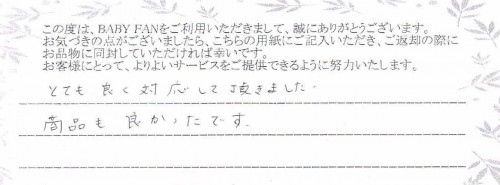 この度は、BABY FANをご利用いただきまして、誠にありがとうございます。
お気づきの点がございましたら、こちらの用紙にご記入いただき、ご返却の際に
お品物に同封していただければ幸いです。
お客様にとって、よりよいサービスをご提供できるように努力いたします。
とても良く対応して頂きました.
商品も良かったです.